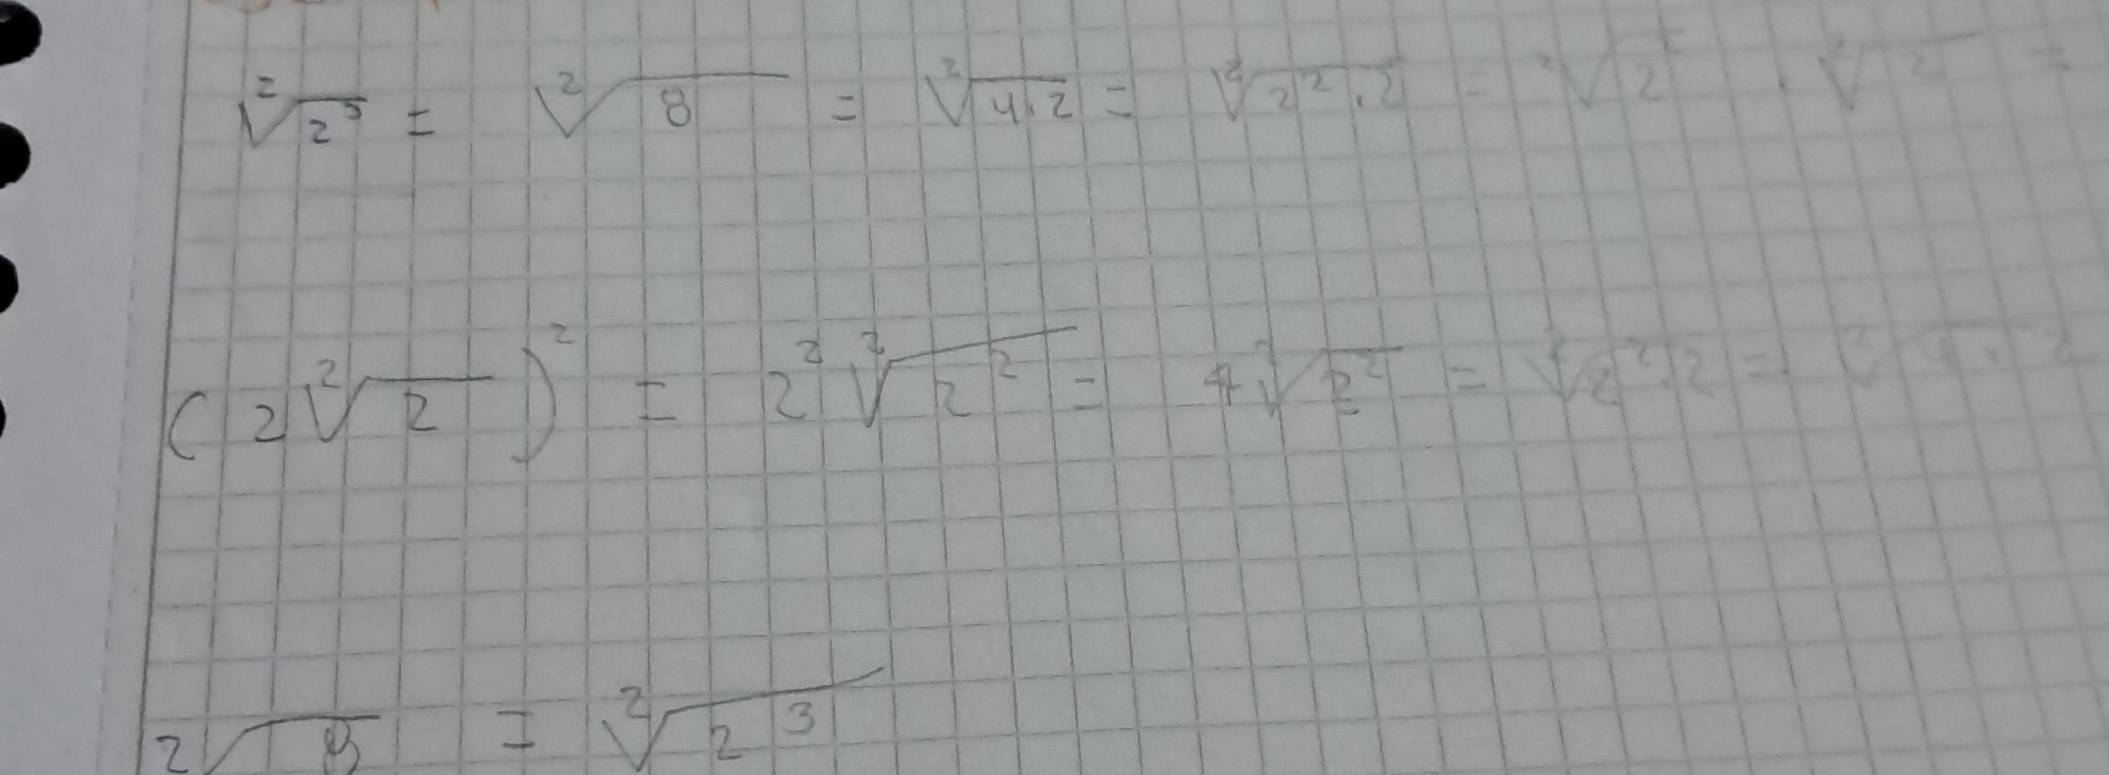 ²√2³ = ²√8 = ²√4.2 = ²√2².2 = ²√2 . ²√2 =
(2 ²√2)² = 2² ²√2² = 4 ²√2² = ²√2².2 =
2√8 = ²√2³